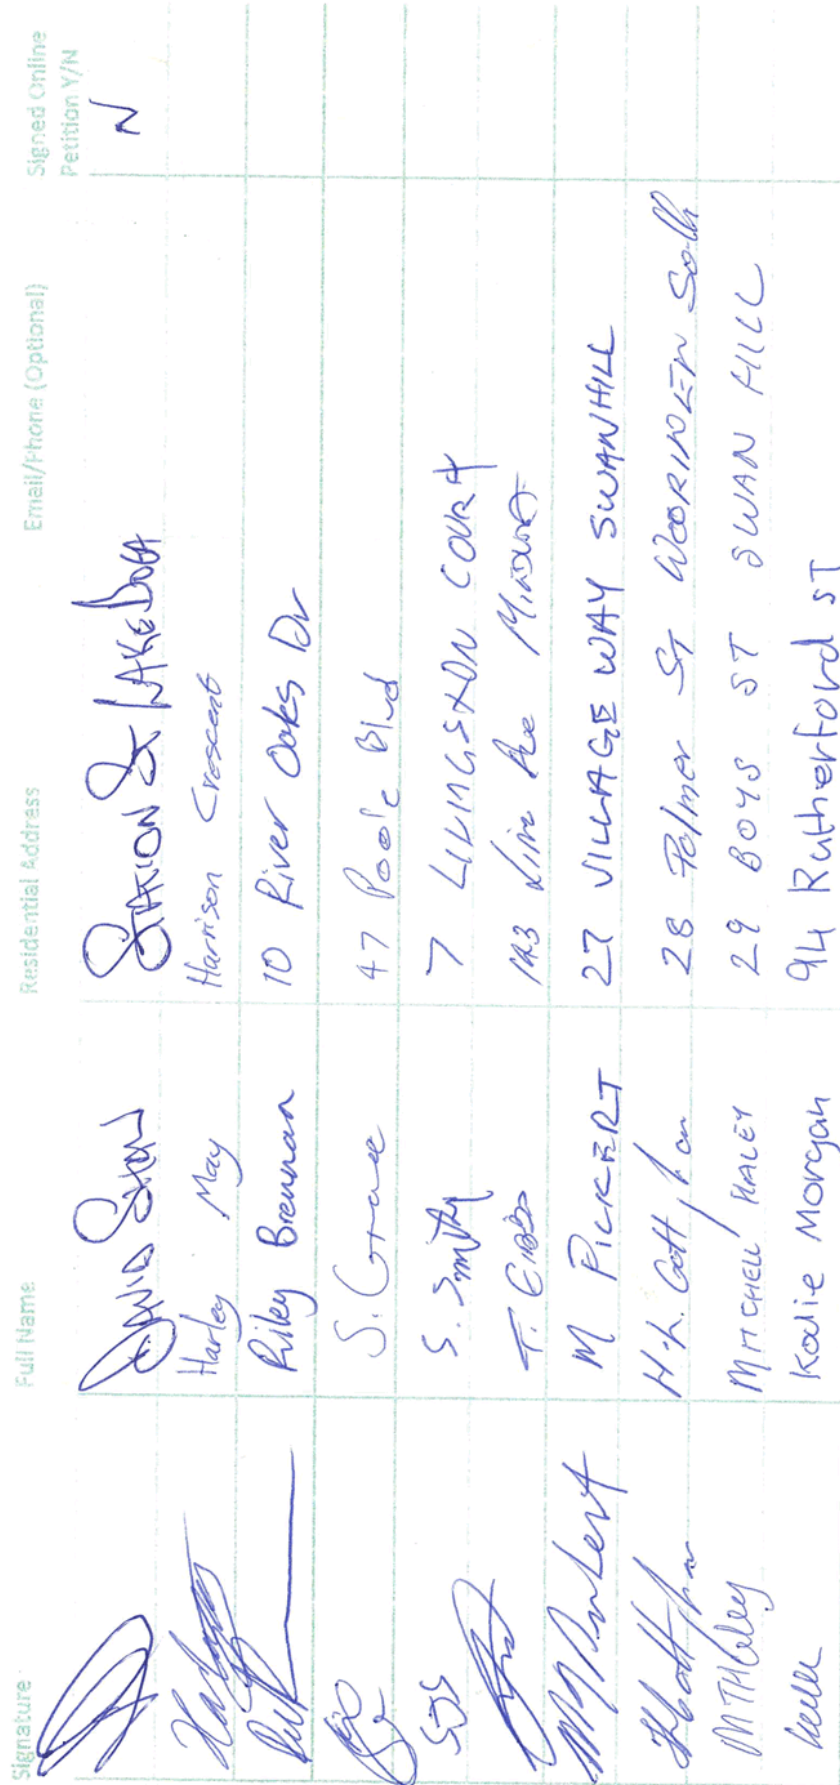 Signature Full Name Residential Address Email/Phone (Optional) Signed Online Petition Y/N
DAVID SHAW STATION St LAKE BOGA N
Harley May Harrison Crescent
Riley Brennan 10 River Oaks Dr
S. Grace 47 Poole Blvd
SJS S. Smith 7 LIVINGSTON COURT
T. GIBBS
M Pickert M PICKERT 27 VILLAGE WAY SWANHILL
H.L. 28 Palmer St WOORINEN South
MTHaley MITCHELL HALEY 29 BOYS ST SWAN HILL
Kodie Morgan 94 Rutherford ST